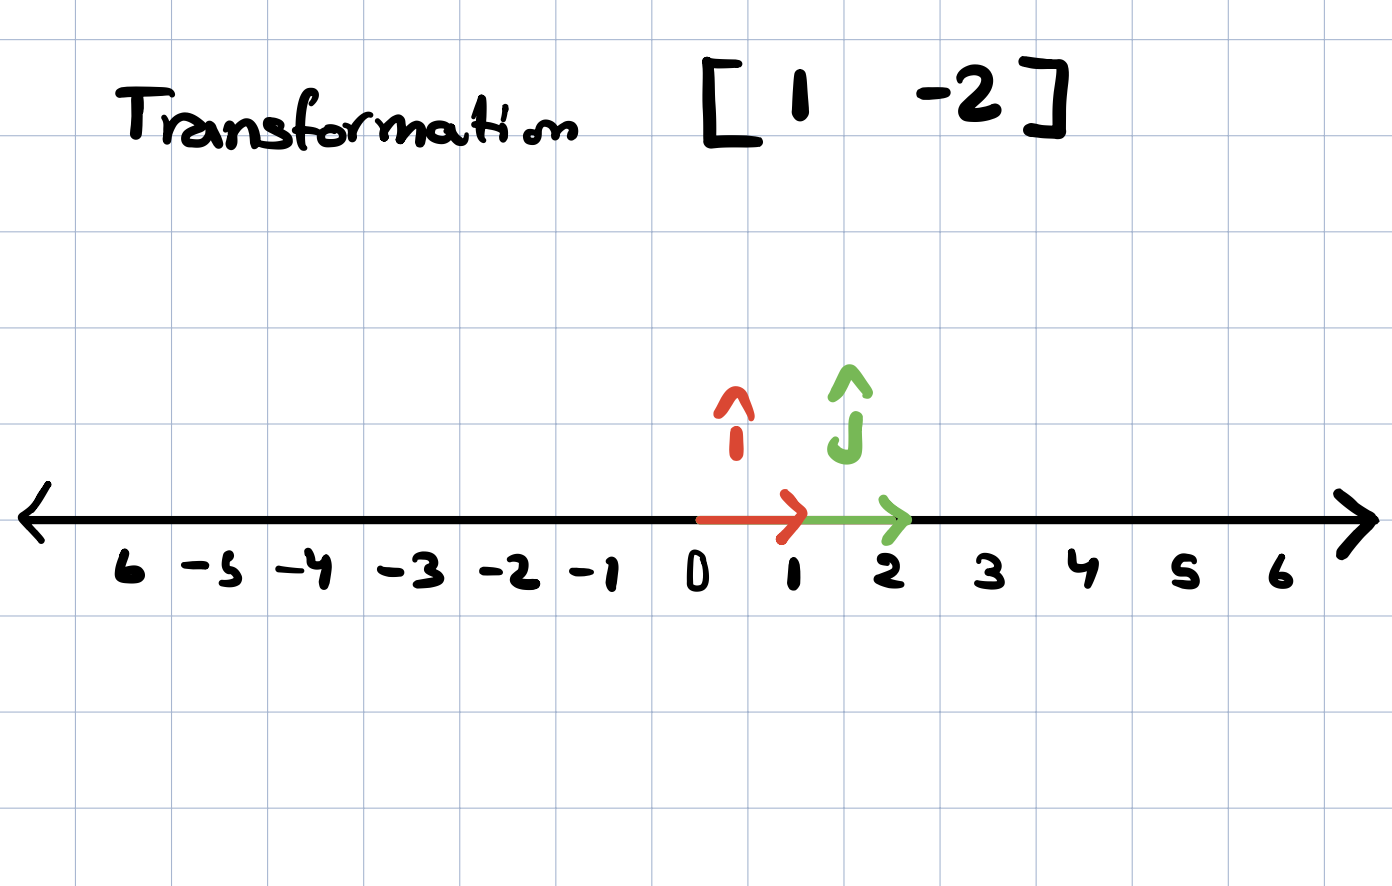 Transformation [ 1 -2 ]
î ĵ
6 -5 -4 -3 -2 -1 0 1 2 3 4 5 6